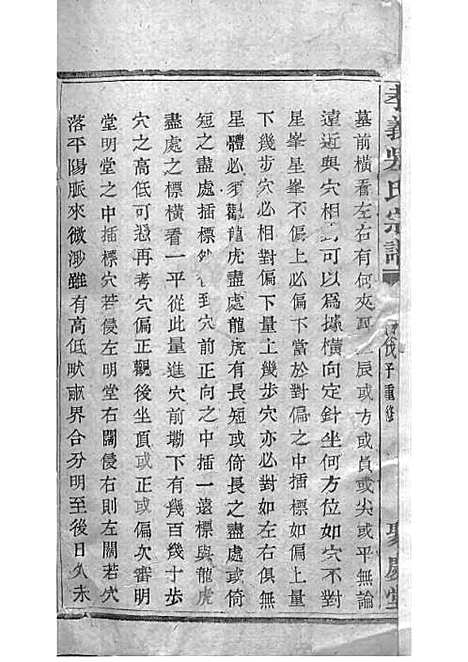 孝義吳氏宗譜
戊子重修
聚慶堂
墓前橫看左右有何夾辰或方或員或尖或平無論
遠近與穴相對可以爲據橫向定針坐何方位如穴不對
星峯星峯不偏上偏下當於對偏之中插標如偏上量
下幾步穴必相對偏下量上幾步穴亦必對如左右俱無
星體必須觀龍虎盡處龍虎有長短或倚長之盡處或倚
短之盡處插標針看到穴前正向之中插一遠標與龍虎
盡處之標橫看一平從此量進穴前墈下有幾百幾十步
穴之高低可憑再考穴偏正觀後坐頂或正或偏次審明
堂明堂之中插標穴若侵左明堂右闊侵右則左闊若穴
落平陽脈來微渺雖有高低畎畝界合分明至後日久未